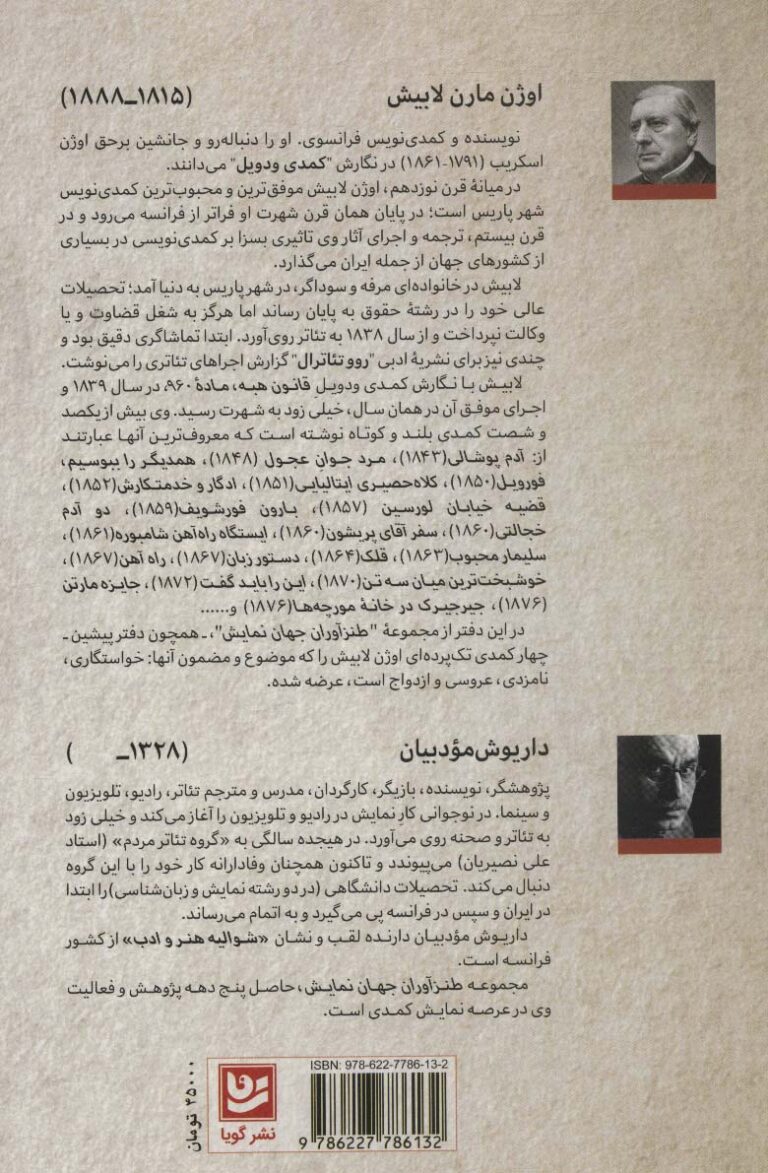 اوژن مارن لابیش (۱۸۱۵ـ۱۸۸۸)
نویسنده و کمدی‌نویس فرانسوی. او را دنباله‌رو و جانشین برحق اوژن
اسکریب (۱۷۹۱-۱۸۶۱) در نگارش "کمدی ودویل" می‌دانند.
در میانهٔ قرن نوزدهم، اوژن لابیش موفق‌ترین و محبوب‌ترین کمدی‌نویس
شهر پاریس است؛ در پایان همان قرن شهرت او فراتر از فرانسه می‌رود و در
قرن بیستم، ترجمه و اجرای آثار وی تاثیری بسزا بر کمدی‌نویسی در بسیاری
از کشورهای جهان از جمله ایران می‌گذارد.
لابیش در خانواده‌ای مرفه و سوداگر، در شهر پاریس به دنیا آمد؛ تحصیلات
عالی خود را در رشتهٔ حقوق به پایان رساند اما هرگز به شغل قضاوت و یا
وکالت نپرداخت و از سال ۱۸۳۸ به تئاتر روی‌آورد. ابتدا تماشاگری دقیق بود و
چندی نیز برای نشریهٔ ادبی "روو تئاترال" گزارش اجراهای تئاتری را می‌نوشت.
لابیش با نگارش کمدی ودویل قانون هبه، مادهٔ ۹۶۰، در سال ۱۸۳۹ و
اجرای موفق آن در همان سال، خیلی زود به شهرت رسید. وی بیش از یکصد
و شصت کمدی بلند و کوتاه نوشته است که معروف‌ترین آنها عبارتند
از: آدم پوشالی(۱۸۴۳)، مرد جوانِ عجول (۱۸۴۸)، همدیگر را ببوسیم،
فورویل(۱۸۵۰)، کلاه‌حصیری ایتالیایی(۱۸۵۱)، ادگار و خدمتکارش(۱۸۵۲)،
قضیه خیابان لورسین (۱۸۵۷)، بارون فورشویف(۱۸۵۹)، دو آدم
خجالتی(۱۸۶۰)، سفر آقای پریشون(۱۸۶۰)، ایستگاه راه‌آهن شامبوره(۱۸۶۱)،
سلیمار محبوب(۱۸۶۳)، قلک(۱۸۶۴)، دستور زبان(۱۸۶۷)، راه آهن(۱۸۶۷)،
خوشبخت‌ترین میان سه تن(۱۸۷۰)، این را باید گفت(۱۸۷۲)، جایزه مارتن
(۱۸۷۶)، جیرجیرک در خانهٔ مورچه‌ها(۱۸۷۶) و......
در این دفتر از مجموعهٔ "طنزآوران جهان نمایش"، ـ همچون دفتر پیشین ـ
چهار کمدی تک‌پرده‌ای اوژن لابیش را که موضوع و مضمون آنها: خواستگاری،
نامزدی، عروسی و ازدواج است، عرضه شده.
داریوش مؤدبیان (۱۳۲۸ـ )
پژوهشگر، نویسنده، بازیگر، کارگردان، مدرس و مترجم تئاتر، رادیو، تلویزیون
و سینما. در نوجوانی کارِ نمایش در رادیو و تلویزیون را آغاز می‌کند و خیلی زود
به تئاتر و صحنه روی می‌آورد. در هیجده سالگی به «گروه تئاتر مردم» (استاد
علی نصیریان) می‌پیوندد و تاکنون همچنان وفادارانه کار خود را با این گروه
دنبال می‌کند. تحصیلات دانشگاهی (در دو رشته نمایش و زبان‌شناسی) را ابتدا
در ایران و سپس در فرانسه پی می‌گیرد و به اتمام می‌رساند.
داریوش مؤدبیان دارنده لقب و نشان «شوالیه هنر و ادب» از کشور
فرانسه است.
مجموعه طنزآوران جهان نمایش، حاصل پنج دهه پژوهش و فعالیت
وی در عرصه نمایش کمدی است.
ISBN: 978-622-7786-13-2
نشر گویا
9 786227 786132
۴۵۰۰۰ تومان